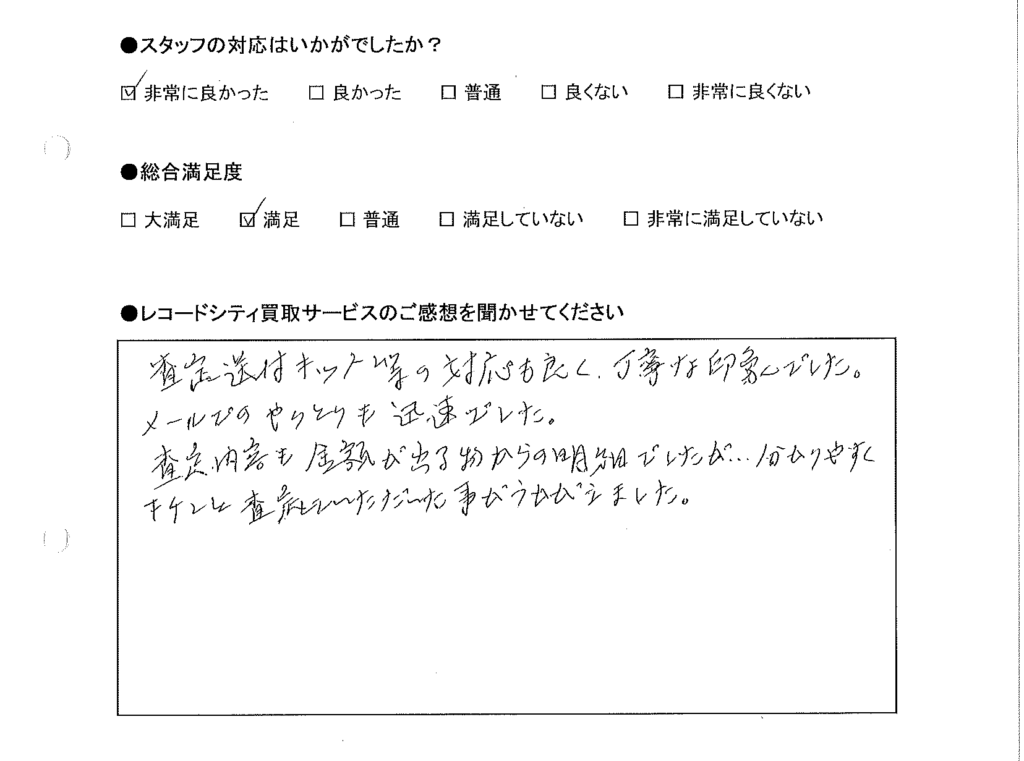 ●スタッフの対応はいかがでしたか？
☑ 非常に良かった □ 良かった □ 普通 □ 良くない □ 非常に良くない
●総合満足度
□ 大満足 ☑ 満足 □ 普通 □ 満足していない □ 非常に満足していない
●レコードシティ買取サービスのご感想を聞かせてください
査定送付キット等の対応も良く、丁寧な印象でした。
メールでのやりとりも迅速でした。
査定内容も金額が出る物からの明細でしたが…分かりやすく
キチンと査定していただいた事がうかがえました。